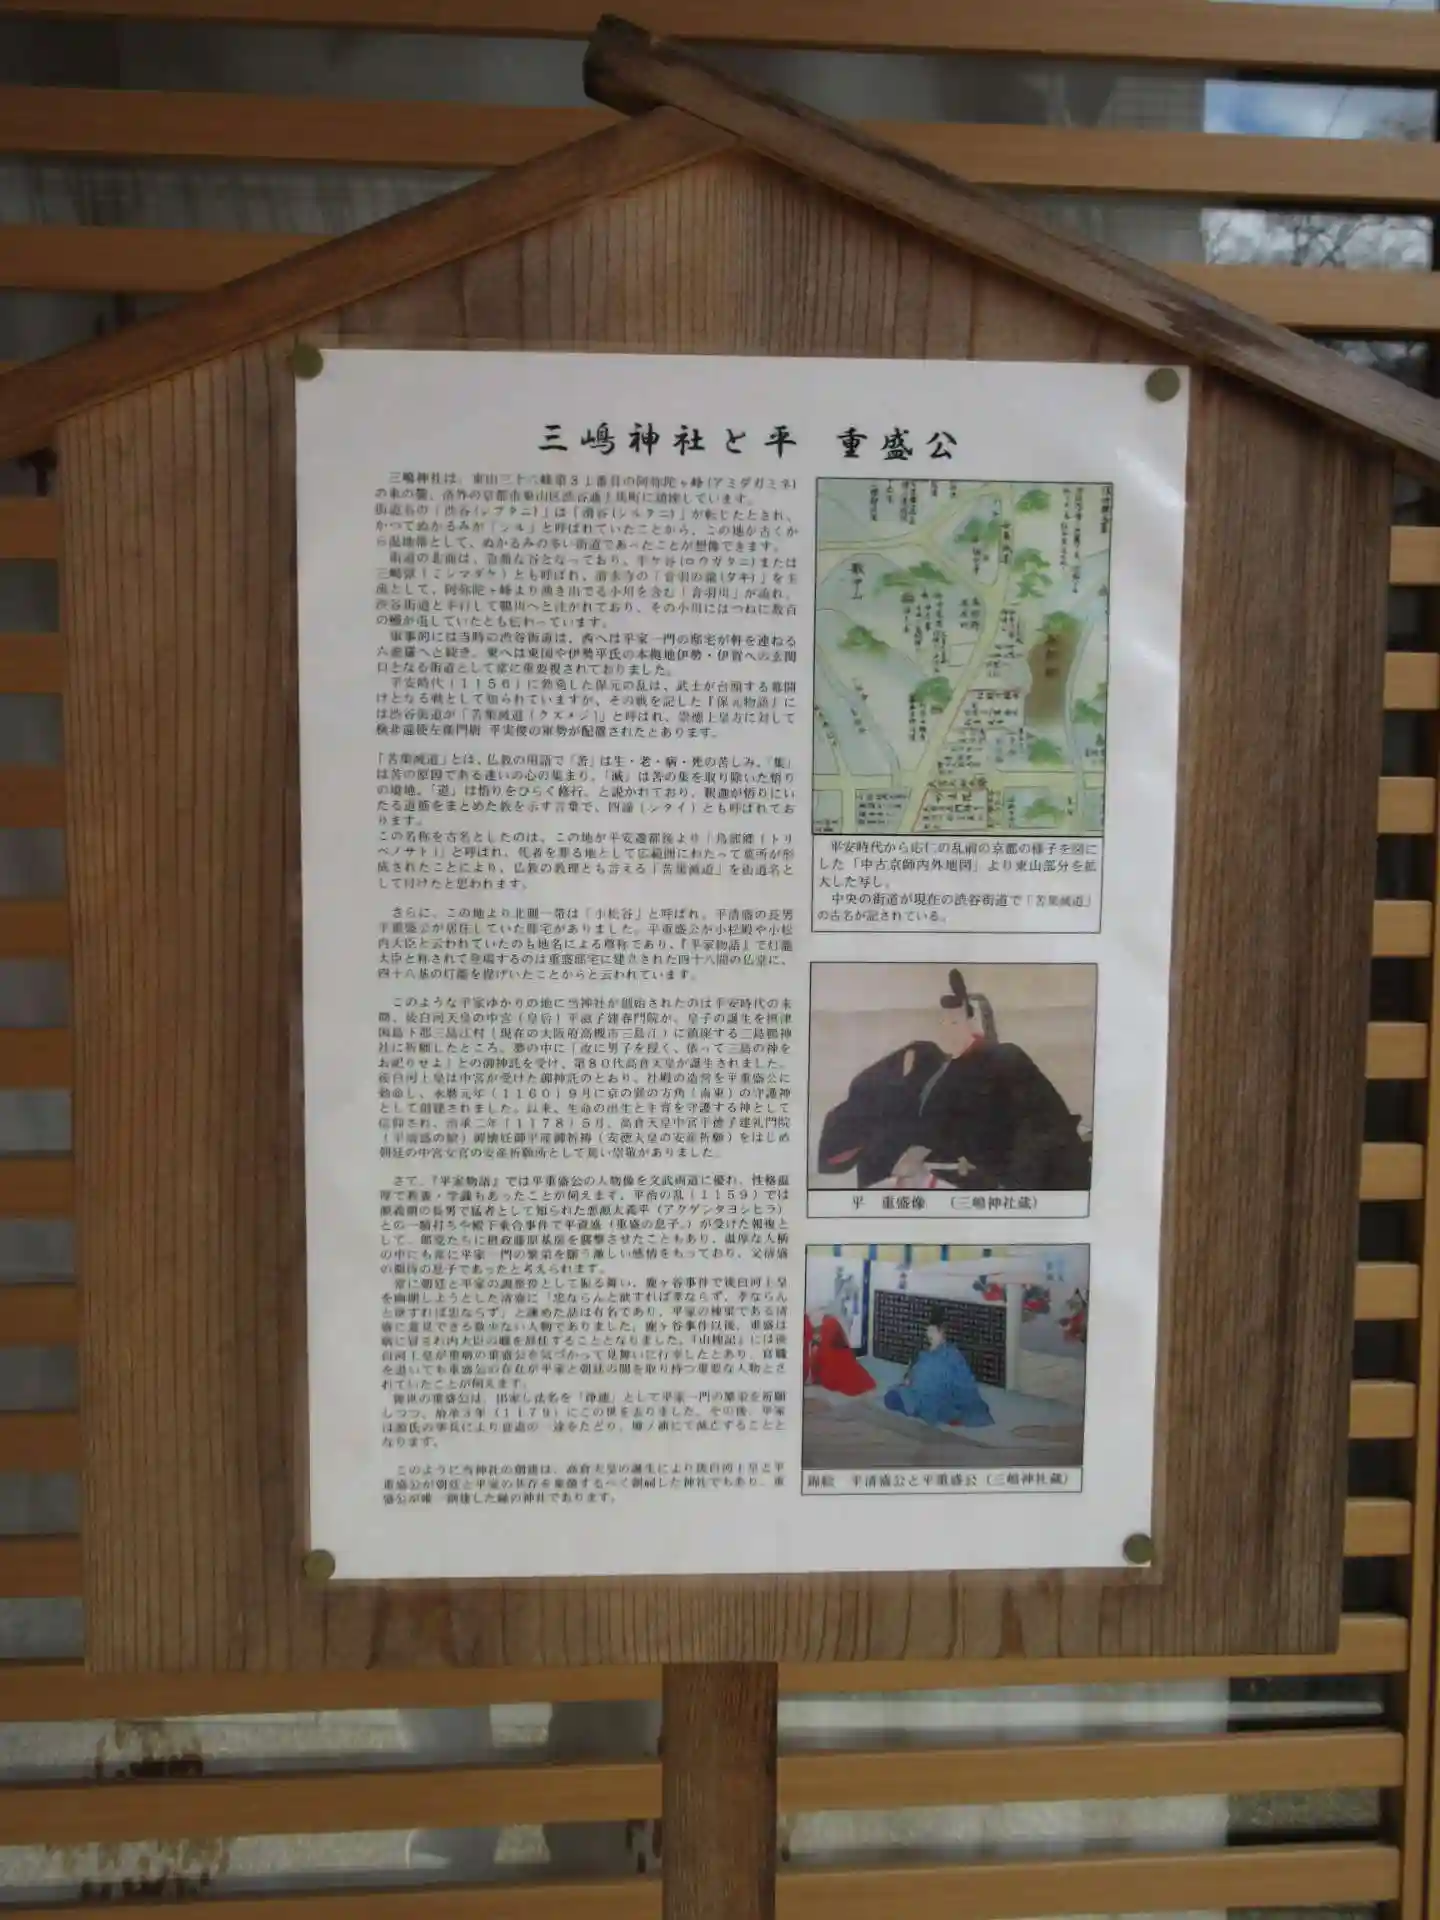 三嶋神社と平　重盛公
三嶋神社は、東山三十六峰第31番目の阿弥陀ヶ峰(アミダガミネ)
の東の麓、洛外の京都市東山区渋谷通上馬町に鎮座しています。
街道名の「渋谷(シブタニ)」は「滑谷(シルタニ)」が転じたとされ、
かつてぬかるみが「シル」と呼ばれていたことから、この地が古くか
ら湿地帯として、ぬかるみの多い街道であったことが想像できます。
街道の北面は、急激な谷となっており、(ロウガタニ)または
三嶋嶽(ミシマダケ)とも呼ばれ、清水寺の「音羽の瀧(タキ)」を主
流として、阿弥陀ヶ峰より湧き出でる小川を含む「音羽川」が流れ、
渋谷街道と平行して鴨川へと注がれており、その小川にはつねに数百
の鰻が生していたとも伝わっています。
軍事的には当時の渋谷街道は、西へは平家一門の邸宅が軒を連ねる
六波羅へと続き、東へは東国や伊勢平氏の本拠地伊勢・伊賀への玄関
口となる街道として常に重要視されておりました。
平安時代(1156)に勃発した保元の乱は、武士が台頭する幕開
けとなる戦として知られていますが、その戦を記した『保元物語』に
は渋谷街道が「苦集滅道(クズメジ)」と呼ばれ、崇徳上皇方に対して
検非違使左衛門尉 平実俊の軍勢が配置されたとあります。
「苦集滅道」とは、仏教の用語で「苦」は生・老・病・死の苦しみ、「集」
は苦の原因である迷いの心の集まり、「滅」は苦の集を取り除いた悟り
の境地、「道」は悟りをひらく修行、と説かれており、釈迦が悟りにい
たる道筋をまとめた教を示す言葉で、四諦(シタイ)とも呼ばれてお
ります。
この名称を古名としたのは、この地が平安遷都後より「鳥部郷(トリ
ベノサト)」と呼ばれ、死者を葬る地として広範囲にわたって墓所が形
成されたことにより、仏教の教理とも言える「苦集滅道」を街道名と
して付けたと思われます。
さらに、この地より北側一帯は「小松谷」と呼ばれ、平清盛の長男
平重盛公が居住していた邸宅がありました。平重盛公が小松殿や小松
内大臣と云われていたのも地名による尊称であり、『平家物語』で灯籠
大臣と称されて登場するのは重盛邸宅に建立された四十八間の仏堂に、
四十八基の灯籠を掲げいたことからと云われています。
このような平家ゆかりの地に当神社が創始されたのは平安時代の末
期、後白河天皇の中宮(皇后)平滋子建春門院が、皇子の誕生を摂津
国島下郡三島江村(現在の大阪府高槻市三島江)に鎮座する三島鴨神
社に祈願したところ、夢の中に「汝に男子を授く、依って三島の神を
お祀りせよ」との御神託を受け、第80代高倉天皇が誕生されました。
後白河上皇は中宮が受けた御神託のとおり、社殿の造営を平重盛公に
勅命し、永暦元年(1160)9月に京の巽の方角(南東)の守護神
として創建されました。以来、生命の出生と生育を守護する神として
信仰され、治承二年(1178)5月、高倉天皇中宮平徳子建礼門院
(平清盛の娘)御懐妊御平産御祈祷(安徳天皇の安産祈願)をはじめ
朝廷の中宮女官の安産祈願所として篤い崇敬がありました。
さて、『平家物語』では平重盛公の人物像を文武両道に優れ、性格温
厚で教養・学識もあったことが伺えます。平治の乱(1159)では
源義朝の長男で猛者として知られた悪源太義平(アクゲンタヨシヒラ)
との一騎打ちや殿下乗合事件で平資盛(重盛の息子。)が受けた報復と
して、郎党たちに摂政藤原基房を襲撃させたこともあり、温厚な人柄
の中にも常に平家一門の繁栄を願う激しい感情をもっており、父清盛
の期待の息子であったと考えられます。
常に朝廷と平家の調整役として振る舞い、鹿ヶ谷事件で後白河上皇
を幽閉しようとした清盛に「忠ならんと欲すれば孝ならず、孝ならん
と欲すれば忠ならず」と諫めた話は有名であり、平家の棟梁である清
盛に意見できる数少ない人物でありました。鹿ヶ谷事件以後、重盛は
病に冒され内大臣の職を辞任することとなりました。『山槐記』には後
白河上皇が重病の重盛公を気づかって見舞いに行幸したとあり、官職
を退いても重盛公の存在が平家と朝廷の間を取り持つ重要な人物とさ
れていたことが伺えます。
晩世の重盛公は、出家し法名を「浄蓮」として平家一門の繁栄を祈願
しつつ、治承3年(1179)にこの世を去りました。その後、平家
は源氏の挙兵により衰退の一途をたどり、壇ノ浦にて滅亡することと
なります。
このように当神社の創建は、高倉天皇の誕生により後白河上皇と平
重盛公が朝廷と平家の共存を象徴するべく創祠した神社でもあり、重
盛公が唯一創建した縁の神社であります。
平安時代から応仁の乱前の京都の様子を図に
した「中古京師内外地図」より東山部分を拡
大した写し。
中央の街道が現在の渋谷街道で「苦集滅道」
の古名が記されている。
平　重盛像　(三嶋神社蔵)
錦絵　平清盛公と平重盛公(三嶋神社蔵)